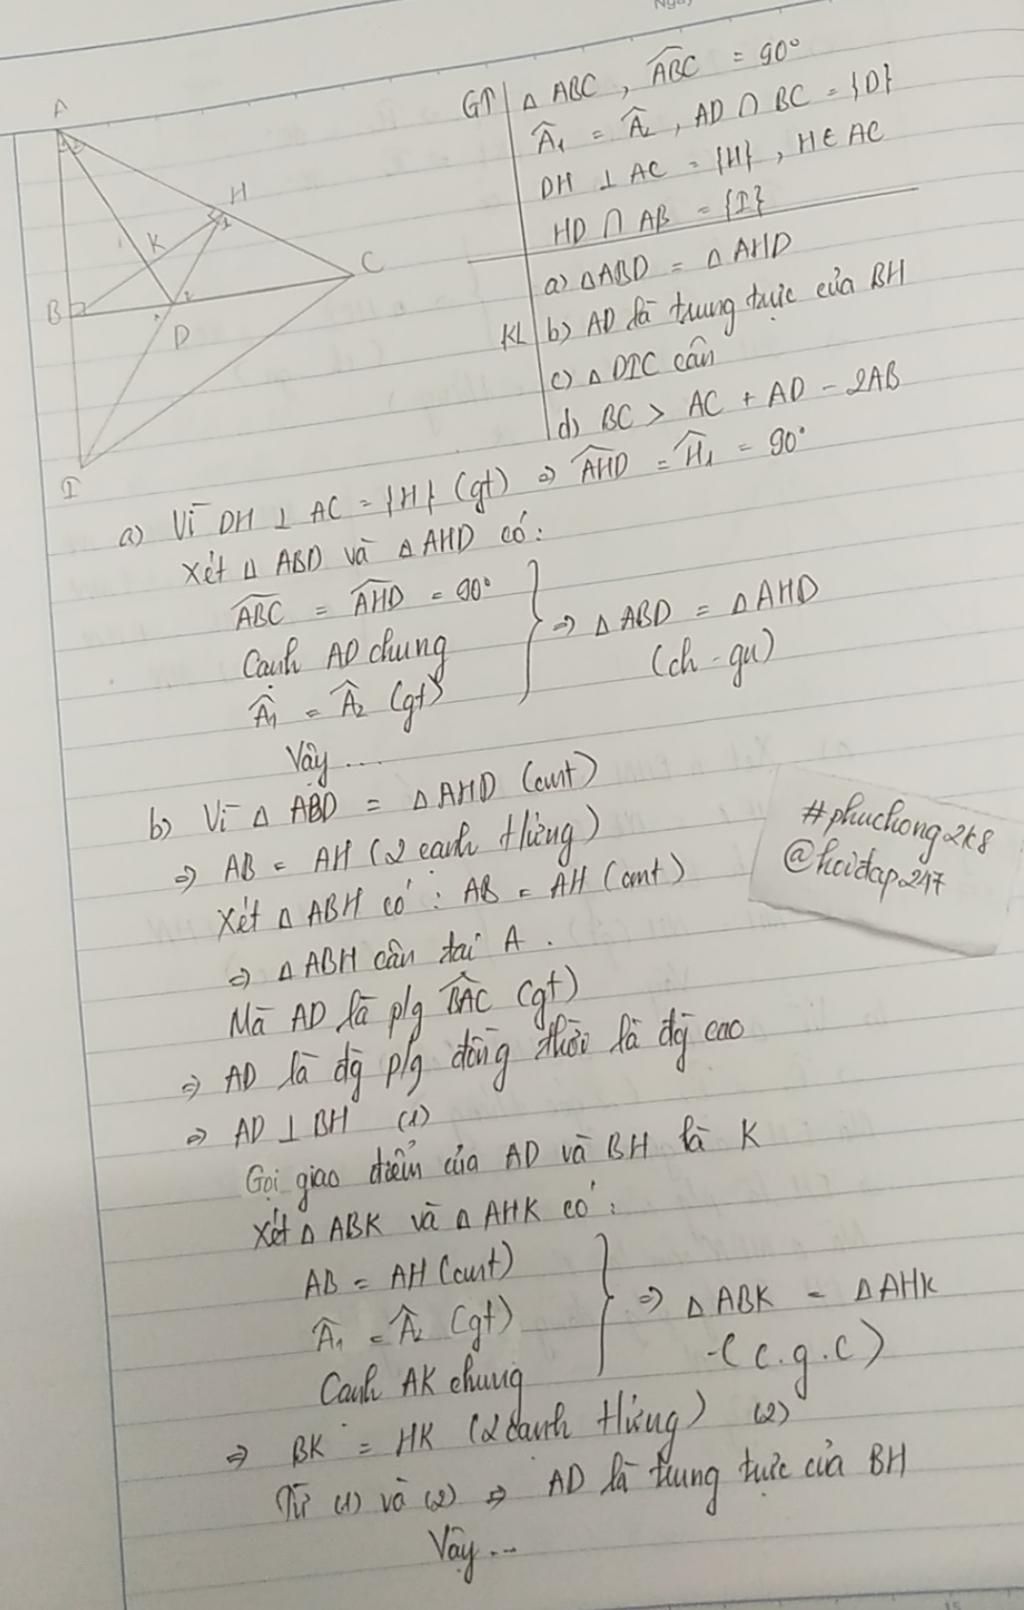 A
H
K
C
B
D
I
GT △ ABC, ABC = 90°
Â₁ = Â₂, AD ∩ BC = {D}
DH ⊥ AC = {H}, H ∈ AC
HD ∩ AB = {I}
KL a) △ABD = △AHD
b) AD là trung trực của BH
c) △ DIC cân
d) BC > AC + AD - 2AB
a) Vì DH ⊥ AC = {H} (gt) ⇒ AHD = Ĥ₁ = 90°
Xét △ ABD và △ AHD có:
ABC = AHD = 90°
Cạnh AD chung
Â₁ = Â₂ (gt)
⇒ △ABD = △AHD
(ch - gn)
Vậy ...
b) Vì △ ABD = △AHD (cmt)
⇒ AB = AH (2 cạnh tứng)
Xét △ ABH có: AB = AH (cmt)
⇒ △ABH cân tại A.
Mà AD là p/g BAC (gt)
⇒ AD là đg p/g đồng thời là đg cao
⇒ AD ⊥ BH (1)
Gọi giao điểm của AD và BH là K
Xét △ ABK và △ AHK có:
AB = AH (cmt)
Â₁ = Â₂ (gt)
Cạnh AK chung
⇒ △ABK = △AHK
(c.g.c)
⇒ BK = HK (2 cạnh tứng) (2)
Từ (1) và (2) ⇒ AD là trung trực của BH
Vậy ...
#phuchong2k8
@hoidap247